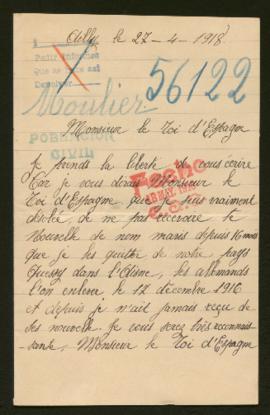 Ailly, le 27-4-1918
56122
Moulier.
POBLACION
CIVIL
Monsieur le Roi d'Espagne
Je prends la liberté de vous écrire
Car je vous dirais Monsieur le
Roi d'Espagne que je suis vraiment
désolée de ne pas recevoire de
Nouvelle de mon maris depuis 16 mois
que je les quitter de notre pays
dans l'Aisne, les allemands
l'on enlever le 12 décembre 1916
et depuis je n'ait jamais reçu de
ses nouvelle je vous serez très reconnais-
sante, Monsieur le Roi d'Espagne